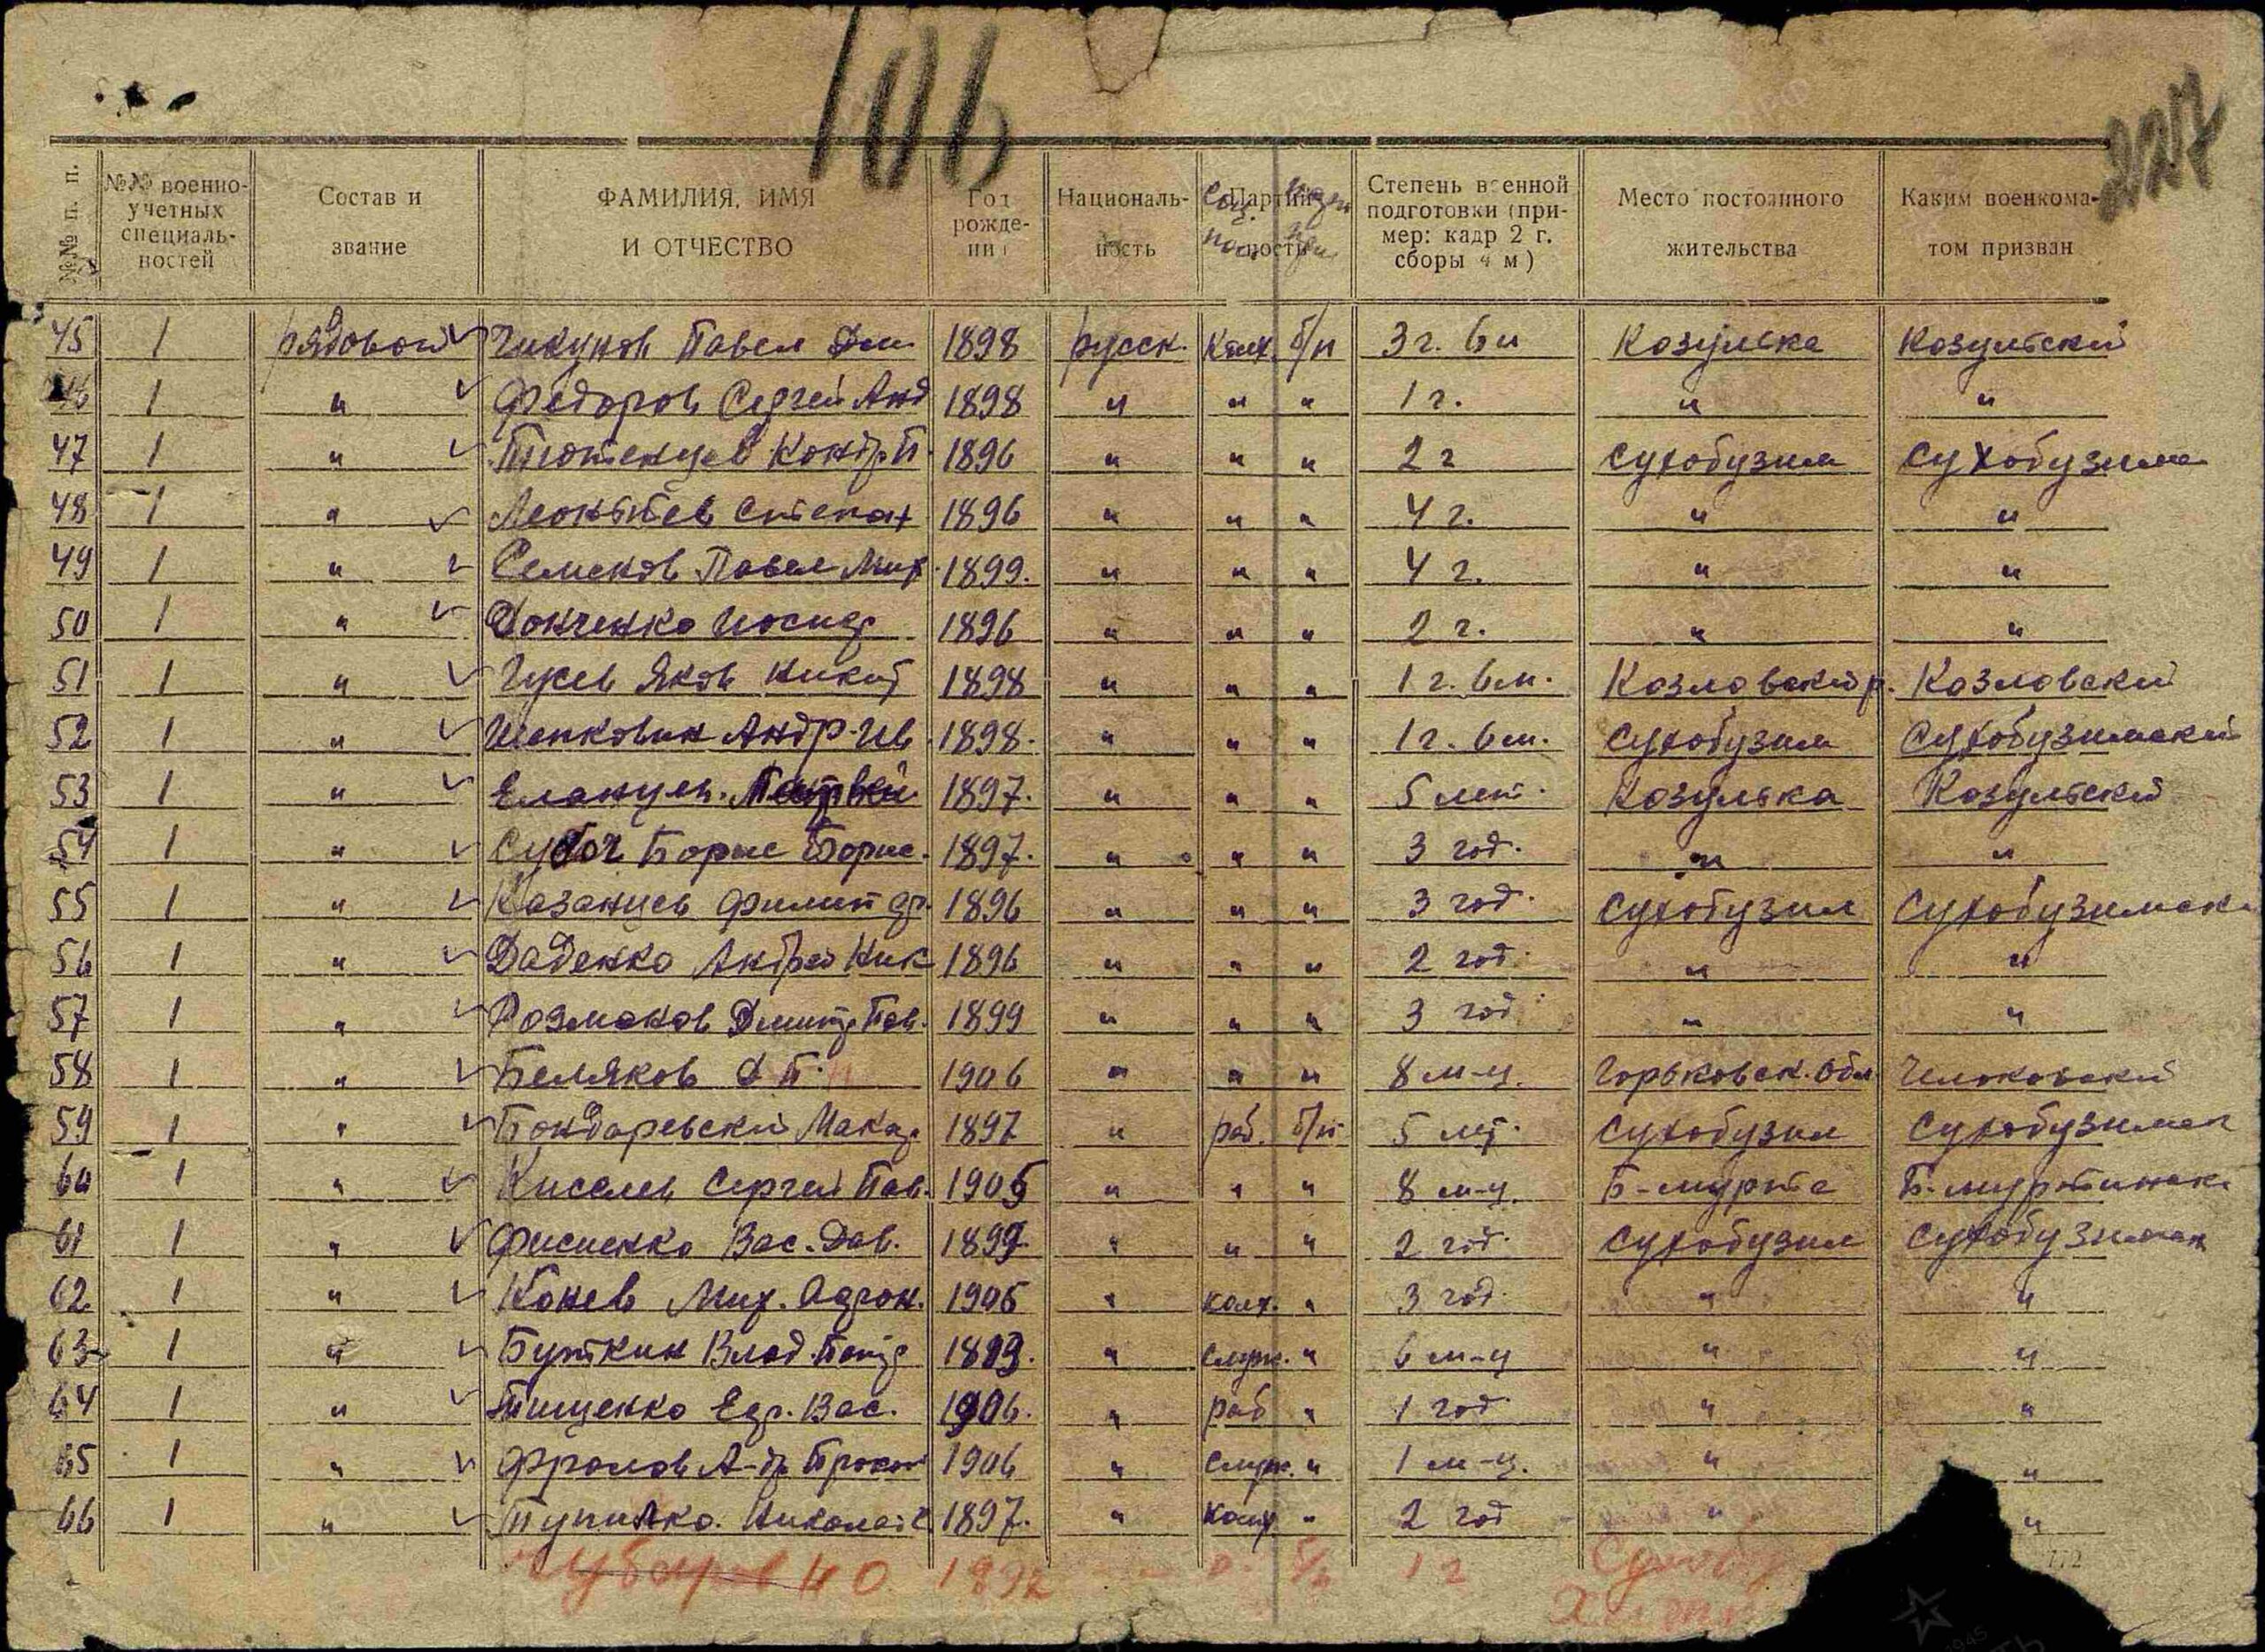 106
227
№№ п. п. №№ военно-учетных специаль-ностей Состав и звание ФАМИЛИЯ, ИМЯ И ОТЧЕСТВО Год рожде-ни Националь-ность Партий-ность Степень военной подготовки (при-мер: кадр 2 г. сборы 4 м) Место постоянного жительства Каким военкома-том призван
45 1 рядовой Чикунов Павел 1898 русск. Колх. б/п 3 г. 6 м Козулька Козульский
46 1 " Федоров Сергей Анд 1898 " " " 1 г. " "
47 1 " Тютенцев Кондр. П. 1896 " " " 2 г Сухобузим Сухобузим
48 1 " Леонтьев Степан 1896 " " " 4 г. " "
49 1 " Семенов Павел Мих. 1899. " " " 4 г. " "
50 1 " Донченко Иосиф 1896 " " " 2 г. " "
51 1 " Гусев Яков Никит 1898 " " " 1 г. 6 м. Козловский р. Козловский
52 1 " Андр. Ив. 1898. " " " 1 г. 6 м. Сухобузим Сухобузимский
53 1 " Матвей 1897. " " " 5 лет. Козулька Козульский
54 1 " Субоч Борис Борис. 1897. " " " 3 год. " "
55 1 " Казанцев Филип 1896 " " " 3 год. Сухобузим Сухобузимск
56 1 " Даденко Андрей Ник 1896 " " " 2 год. " "
57 1 " Розмахов Дмитр. Пав. 1899 " " " 3 год " "
58 1 " Беляков Д. П. 1906 " " " 8 м-ц. Горьковск. обл.
59 1 " Бондаревский Макар 1897 " раб. б/п 5 лет. Сухобузим Сухобузимск
60 1 " Киселев Сергей Пав. 1905 " " " 8 м-ц. Б-мурта Б-муртинск
61 1 " Фисиенко Вас. Дав. 1897 " " " 2 год. Сухобузим Сухобузимск
62 1 " Конев Мих. 1905 " колх. " 3 год. " "
63 1 " Буткин Влад. 1899. " служ. " 6 м-ц " "
64 1 " Тищенко Егр. Вас. 1906. " раб " 1 год. " "
65 1 " Фролов А-др Прокоп 1906 " служ. " 1 м-ц. " "
66 1 " Тупилко Николай 1897. " колх. " 2 год " "
1892 1 г